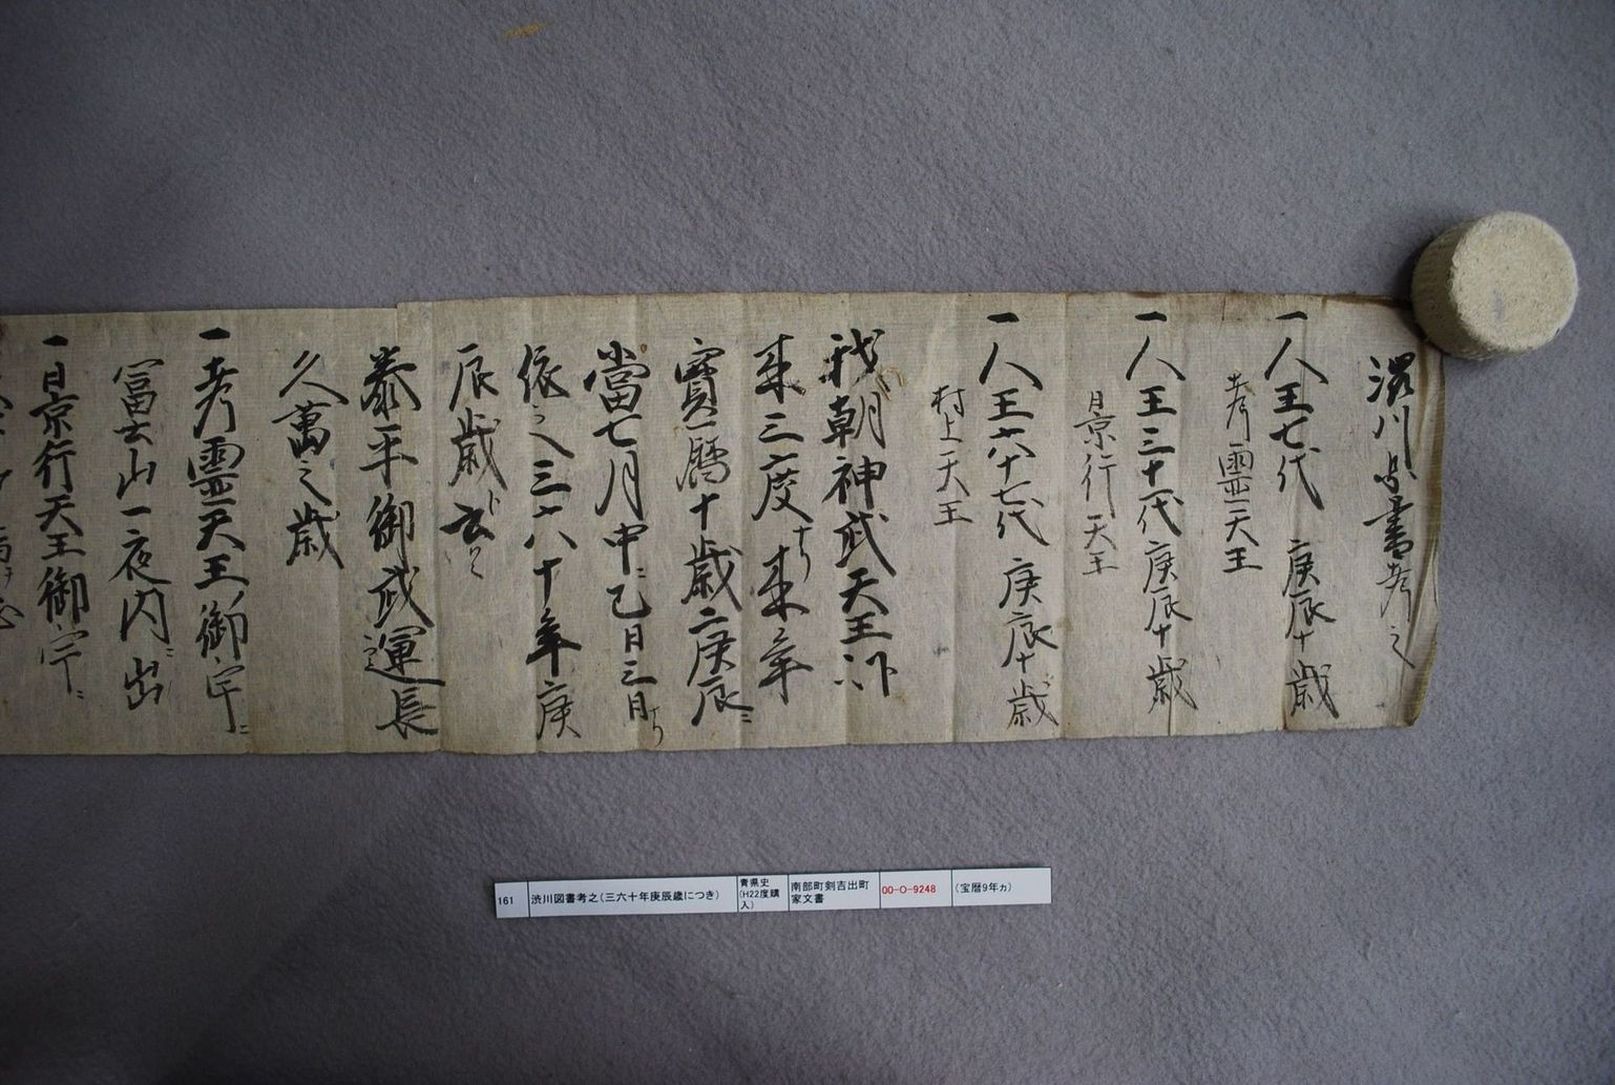 渋川図書考之
一人王七代 庚辰十歳
考霊天王
一人王三十代庚辰十歳
景行天王
一人王六十七代 庚辰十歳
村上天王
我朝神武天王以
来三度ナリ来ル年
寳暦十歳ニ庚辰ニ
當七月中ニ乙日三日ナリ
依之三六十年庚
辰歳ト云々
泰平御武運長
久萬之歳
一考霊天王御宇ニ
冨士山一夜内ニ出
一景行天王御宇ニ
161
渋川図書考之(三六十年庚辰歳につき)
青県史
(H22度購
入)
南部町剣吉出町
家文書
00-O-9248
(宝暦9年ヵ)